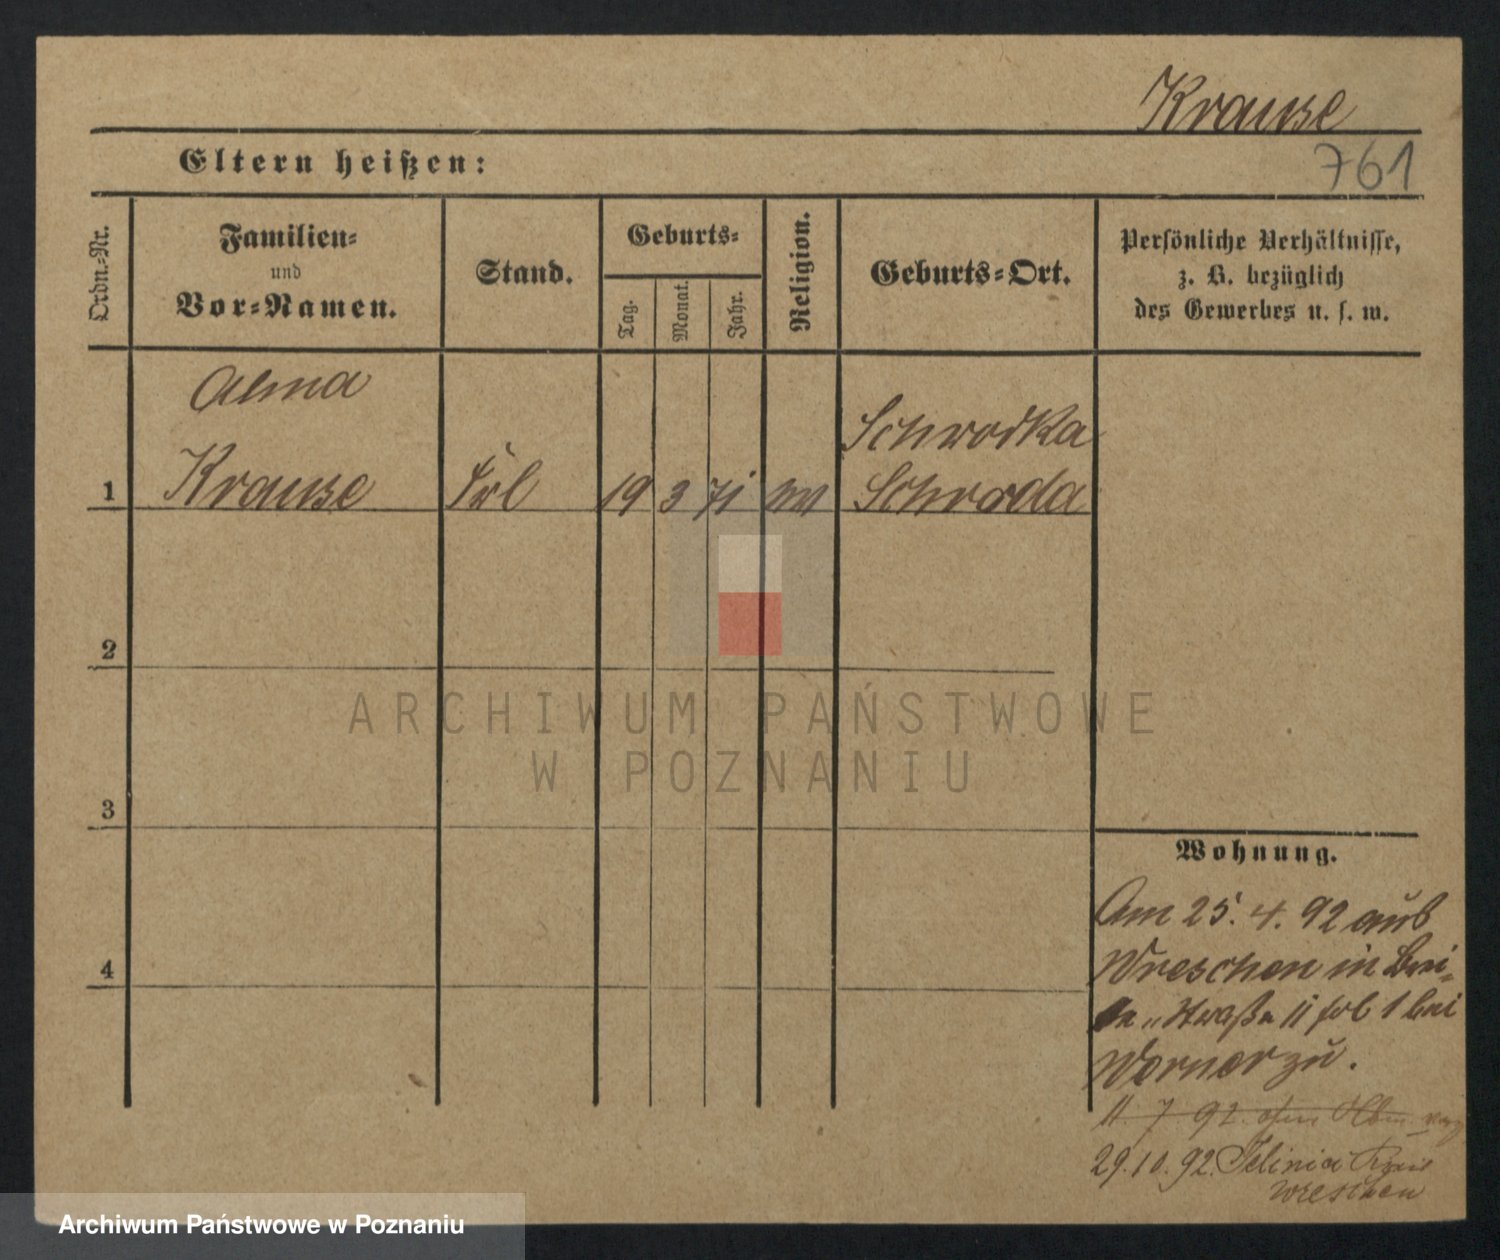 Krause
Eltern heißen:
761
Ordn.-Nr.
Familien-
und
Vor-Namen.
Stand.
Geburts-
Tag.
Monat.
Jahr.
Religion.
Geburts-Ort.
Persönliche Verhältnisse,
z. B. bezüglich
des Gewerbes u. s. w.
Alma
Krause
Frl
19 3 71
Schrodka
Schroda
1
2
3
4
Wohnung.
Am 25. 4. 92 aus
Wreschen in Brei-
te-Straße 11 bei
Werner zu.
11. 7. 92.
29.10.92.
Wreschen
ARCHIWUM PAŃSTWOWE
W POZNANIU
Archiwum Państwowe w Poznaniu